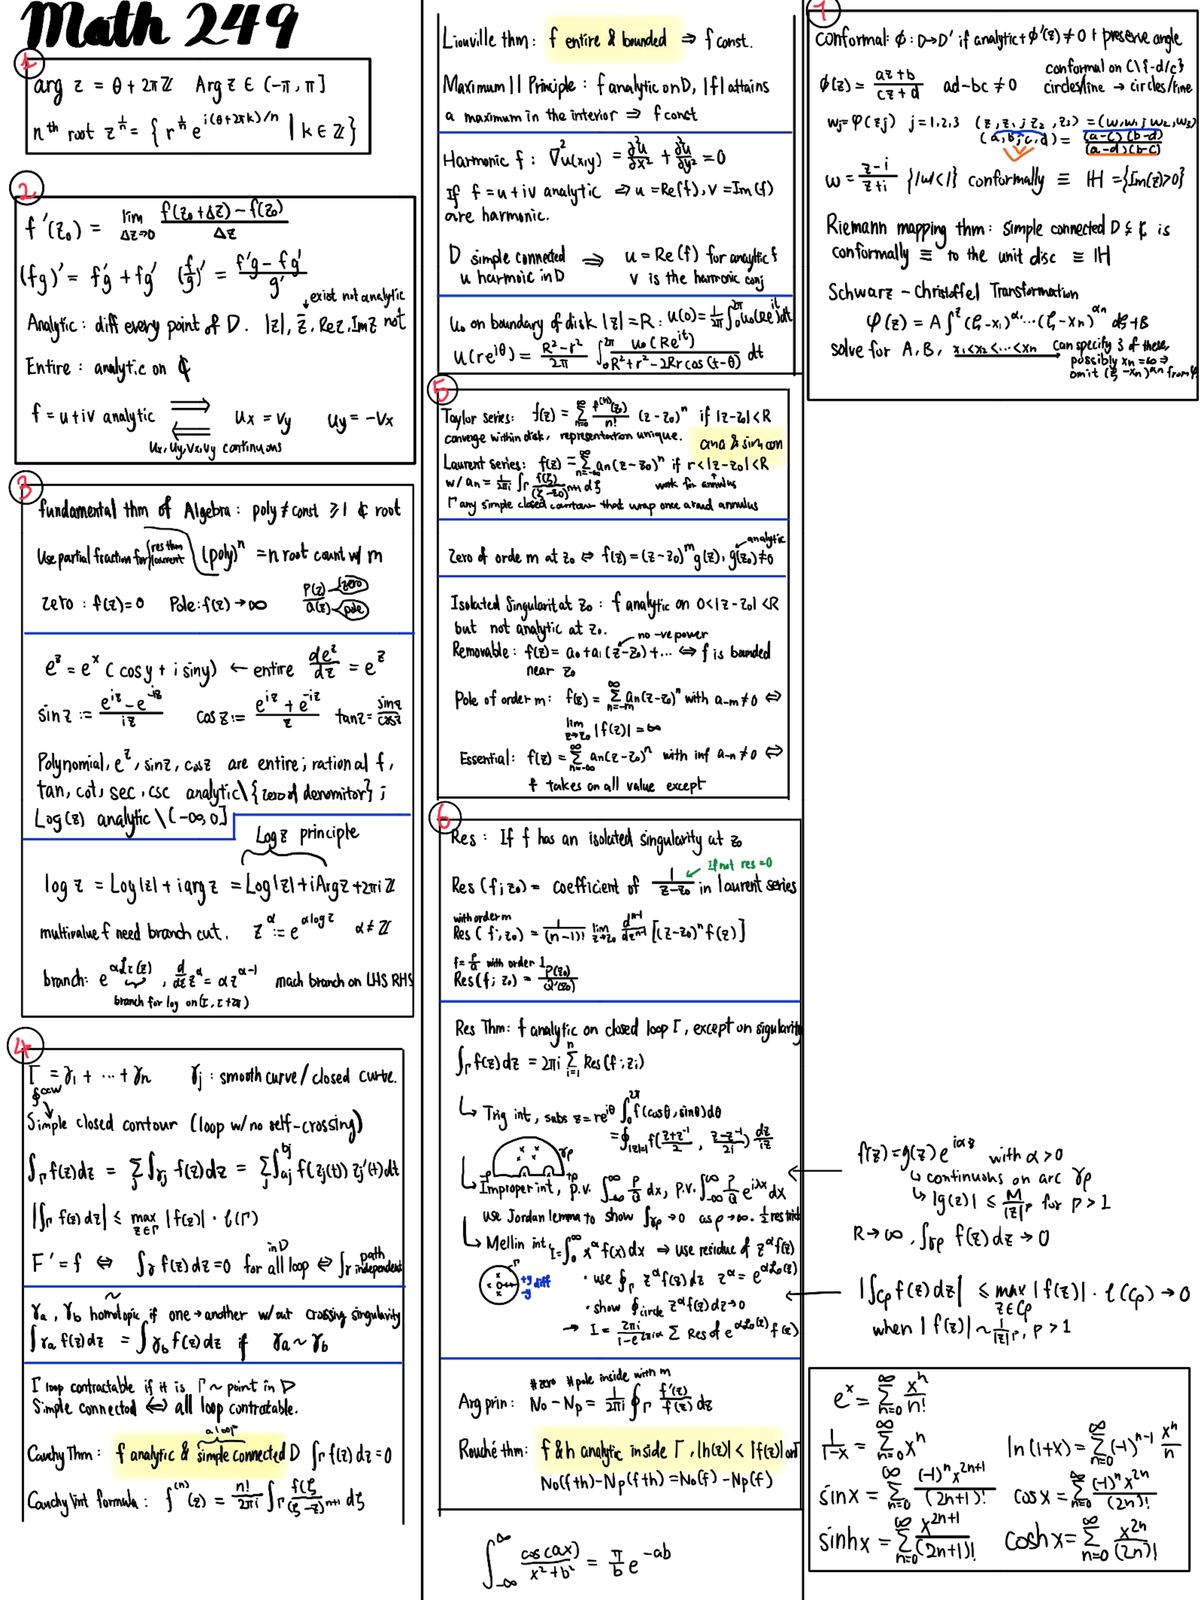 Math 249
1.
arg z = θ + 2πℤ   Arg z ∈ (-π, π]
nth root z^{1/n} = { r^{1/n} e^{i(θ+2πk)/n} | k ∈ ℤ }
2.
f'(z₀) = lim_{Δz→0} (f(z₀+Δz) - f(z₀))/Δz
(fg)' = f'g + fg'   (f/g)' = (f'g - fg')/g'
exist not analytic
Analytic : diff every point of D. |z|, z̄, Re z, Im z not
Entire : analytic on ℂ
f = u+iv analytic ⟹ ⟸ u_x = v_y   u_y = -v_x
u_x, u_y, v_x, v_y continuous
3
fundamental thm of Algebra : poly ≠ const ≥ 1 ℂ root
Use partial fraction for (res thm / laurent   (poly)^n = n root count w/ m
zero : f(z)=0   Pole : f(z) → ∞   P(z)/Q(z) zero pole
e^z = e^x (cos y + i sin y) ← entire de^z/dz = e^z
sin z := (e^{iz} - e^{-iz})/iz   cos z := (e^{iz} + e^{-iz})/z   tan z = sin z/cos z
Polynomial, e^z, sin z, cos z are entire ; rational f,
tan, cot, sec, csc analytic \ {zero of denomitor} ;
Log(z) analytic \ (-∞, 0]
Log z principle
log z = Log|z| + i arg z = Log|z| + i Arg z + 2πi ℤ
multivalue f need branch cut.   z^α := e^{α log z}   α ∉ ℤ
branch : e^{αℒτ(z)}, d/dz z^α = α z^{α-1}   mach branch on LHS RHS
branch for log on (τ, τ+2π)
4
Γ = γ₁ + ... + γn   γj : smooth curve / closed curve.
∮ ccw
Simple closed contour (loop w/ no self-crossing)
∫_Γ f(z) dz = Σ_j ∫_{γj} f(z) dz = Σ_j ∫_{aj}^{bj} f(zj(t)) zj'(t) dt
|∫_Γ f(z) dz| ≤ max_{z∈Γ} |f(z)| · ℓ(Γ)
F' = f ⇔ ∫_γ f(z) dz = 0 for all loop in D ⇔ ∫_γ path independent
γa, γb homotopic ~ if one → another w/out crossing singularity
∫_{γa} f(z) dz = ∫_{γb} f(z) dz if γa ~ γb
Γ loop contractable if it is Γ ~ point in D
Simple connected ⇔ all loop contratable.
a loop
Cauchy Thm : f analytic & simple connected D ∫_Γ f(z) dz = 0
Cauchy int formula : f^{(n)}(z) = n!/2πi ∫_Γ f(ζ)/(ζ-z)^{n+1} dζ
Liouville thm : f entire & bounded ⇒ f const.
Maximum || Principle : f analytic on D, |f| attains
a maximum in the interior ⇒ f const
Harmonic f : ∇²u(x,y) = ∂²u/∂x² + ∂²u/∂y² = 0
If f = u+iv analytic ⇒ u = Re(f), v = Im(f)
are harmonic.
D simple connected ⇒ u = Re(f) for analytic f
u harmonic in D   v is the harmonic conj
u₀ on boundary of disk |z| = R : u(0) = 1/2π ∫_0^{2π} u₀(Re^{it}) dt
u(re^{iθ}) = (R²-r²)/2π ∫_0^{2π} u₀(Re^{it})/(R²+r²-2Rr cos(t-θ)) dt
5
Taylor series : f(z) = Σ_{n=0}^∞ f^{(n)}(z₀)/n! (z-z₀)^n if |z-z₀| < R
converge within disk, representation unique.
Laurent series : f(z) = Σ_{n=-∞}^∞ an(z-z₀)^n if r < |z-z₀| < R
w/ an = 1/2πi ∫_Γ f(ζ)/(ζ-z₀)^{n+1} dζ   work for annulus
Γ any simple closed contour that wrap once around annulus
Zero of orde m at z₀ ⇔ f(z) = (z-z₀)^m g(z), g(z₀) ≠ 0
analytic
Isolated Singularit at z₀ : f analytic on 0 < |z-z₀| < R
but not analytic at z₀.
no -ve power
Removable : f(z) = a₀ + a₁(z-z₀) + ... ⇔ f is bounded
near z₀
Pole of order m : f(z) = Σ_{n=-m}^∞ an(z-z₀)^n with a-m ≠ 0 ⇔
lim_{z→z₀} |f(z)| = ∞
Essential : f(z) = Σ_{n=-∞}^∞ an(z-z₀)^n with inf a-n ≠ 0 ⇔
f takes on all value except
6
Res : If f has an isolated singularity at z₀
If not res = 0
Res (f ; z₀) = coefficient of 1/(z-z₀) in laurent series
with order m
Res( f ; z₀) = 1/(n-1)! lim_{z→z₀} d^{n-1}/dz^{n-1} [(z-z₀)^n f(z)]
f = P/Q with order 1
Res(f ; z₀) = P(z₀)/Q'(z₀)
Res Thm : f analytic on closed loop Γ, except on sigularity
∫_Γ f(z) dz = 2πi Σ_{i=1}^n Res(f ; zi)
↳ Trig int, subs z = re^{iθ} ∫_0^{2π} f(cosθ, sinθ) dθ
= ∮_{|z|=1} f((z+z^{-1})/2, (z-z^{-1})/2i) dz/iz
γρ
-ρ +ρ
↳ Improper int, p.v. ∫_{-∞}^∞ P/Q dx, p.v. ∫_{-∞}^∞ P/Q e^{iλx} dx
use Jordan lemma to show ∫_{γρ} → 0 as ρ → ∞.
↳ Mellin int I = ∫_0^∞ x^α f(x) dx ⇒ use residue of z^α f(z)
Γ +γ -γ diff
· use ∮_Γ z^α f(z) dz   z^α = e^{αℒ₀(z)}
· show ∮_circle z^α f(z) dz → 0
→ I = 2πi/(1-e^{2πiα}) Σ Res of e^{αℒ₀(z)} f(z)
#zero #pole inside with m
Arg prin : N₀ - Np = 1/2πi ∮_Γ f'(z)/f(z) dz
Rouché thm : f & h analytic inside Γ, |h(z)| < |f(z)| on Γ
N₀(f+h) - Np(f+h) = N₀(f) - Np(f)
∫_{-∞}^∞ cos(ax)/(x²+b²) = π/b e^{-ab}
7
conformal : Φ : D→D' if analytic + Φ'(z) ≠ 0 + preserve angle
Φ(z) = (az+b)/(cz+d)   ad-bc ≠ 0   conformal on ℂ\{-d/c}
circles/line → circles/line
wj = φ(zj)   j = 1,2,3   (z, z₁ ; z₂, z₃) = (w, w₁ ; w₂, w₃)
(a, b ; c, d) = (a-c)(b-d)/(a-d)(b-c)
w = (z-i)/(z+i)   {|w|<1} conformally ≡ ℍ = {Im(z)>0}
Riemann mapping thm : simple connected D ⊊ ℂ is
conformally ≡ to the unit disc ≡ ℍ
Schwarz - Christoffel Transformation
φ(z) = A ∫^z (ζ-x₁)^{α₁} ... (ζ-xn)^{αn} dζ + B
solve for A, B, x₁<x₂<...<xn   can specify 3 of these,
possibly xn = ∞ ⇒
omit (ζ-xn)^{αn} from φ
f(z) = g(z) e^{iαz} with α > 0
↳ continuous on arc γρ
↳ |g(z)| ≤ M/|z|^p for p > 1
R → ∞, ∫_{γρ} f(z) dz → 0
|∫_{Cρ} f(z) dz| ≤ max_{z∈Cρ} |f(z)| · ℓ(Cρ) → 0
when |f(z)| ~ 1/|z|^p, p > 1
e^x = Σ_{n=0}^∞ x^n/n!
1/(1-x) = Σ_{n=0}^∞ x^n   ln(1+x) = Σ_{n=0}^∞ (-1)^{n-1} x^n/n
sin x = Σ_{n=0}^∞ (-1)^n x^{2n+1}/(2n+1)!   cos x = Σ_{n=0}^∞ (-1)^n x^{2n}/(2n)!
sinh x = Σ_{n=0}^∞ x^{2n+1}/(2n+1)!   cosh x = Σ_{n=0}^∞ x^{2n}/(2n)!